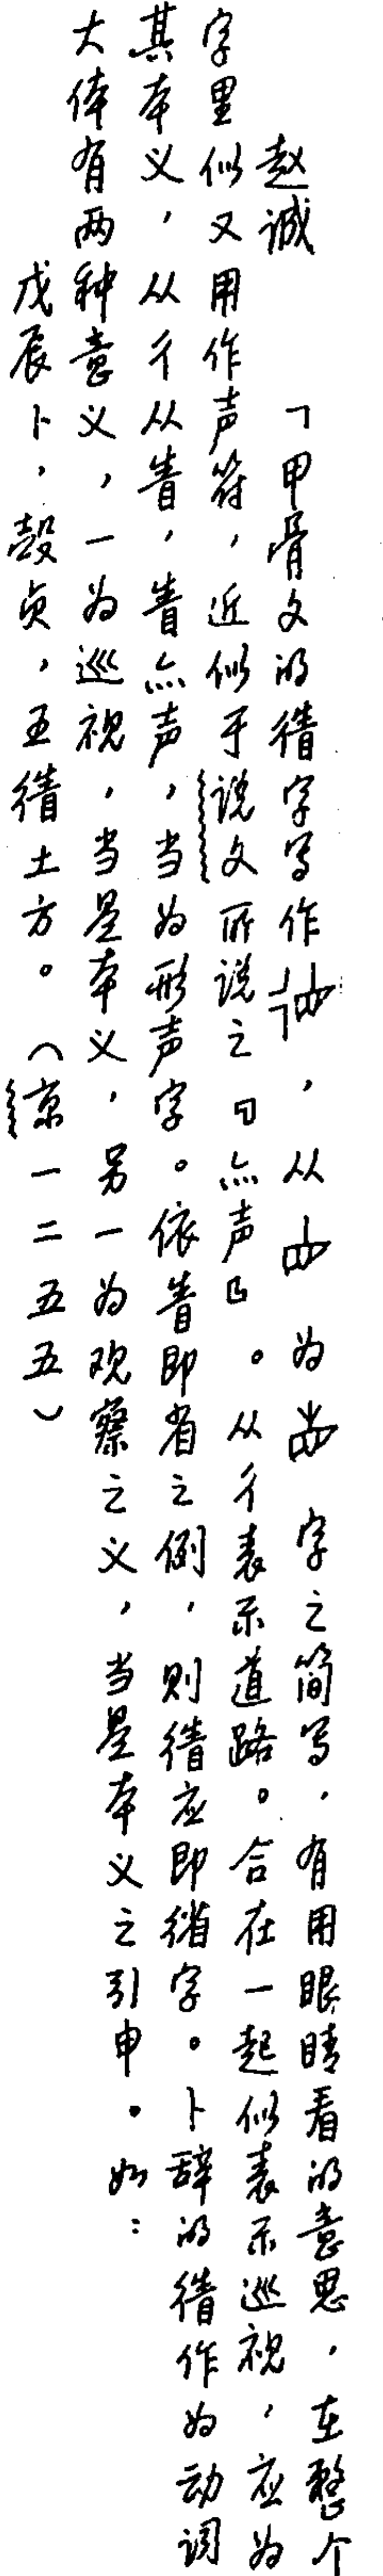 赵诚　「甲骨文的字写作，从为字之简写，有用眼睛看的意思，在整个
字里似又用作声符，近似于说文所说之『亦声』。从彳表示道路。合在一起似表示巡视，应为
其本义，从彳从眚，眚亦声，当为形声字。依眚即省之例，则应即字。卜辞的作为动词
大体有两种意义，一为巡视，当是本义，另一为观察之义，当是本义之引申。如：
戊辰卜，㱿贞，王土方。（京一二五五）